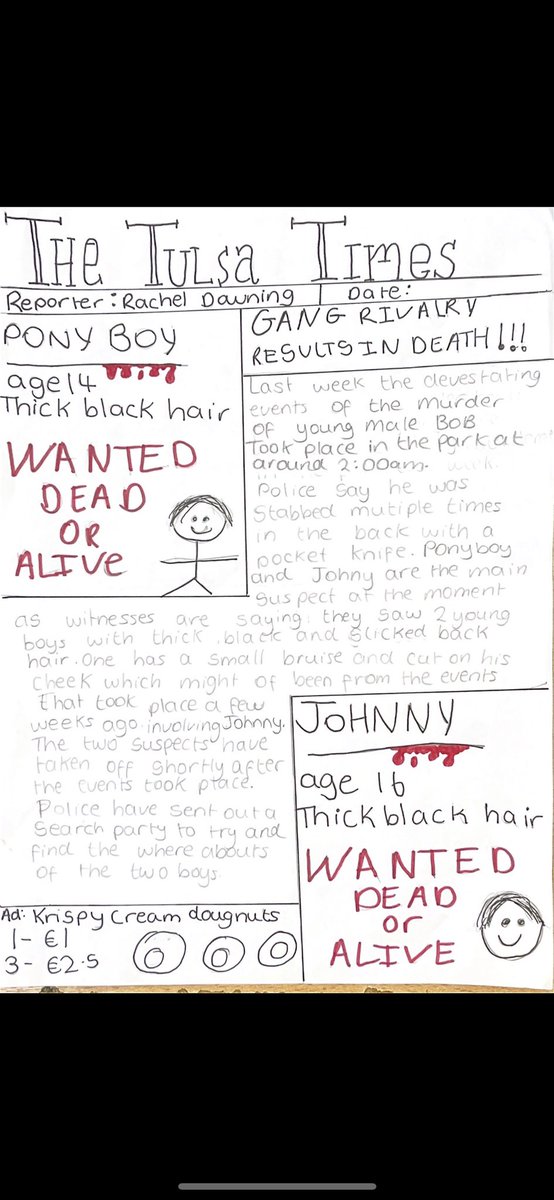 THE TULSA TIMES
Reporter: Rachel Downing
Date:
PONY BOY
age 14
Thick black hair
WANTED
DEAD
OR
ALIVE
GANG RIVALRY
RESULTS IN DEATH!!!
Last week the devestating
events of the murder
of young male BOB
Took place in the park at
around 2:00am.
Police say he was
Stabbed mutiple times
in the back with a
pocket knife. Ponyboy
and Johny are the main
suspect at the moment
as witnesses are saying they saw 2 young
boys with thick black and slicked back
hair. One has a small bruise and cut on his
cheek which might of been from the events
that took place a few
weeks ago involving Johnny.
The two suspects have
taken off shortly after
the events took place.
Police have sent out a
Search party to try and
find the where abouts
of the two boys
JOHNNY
age 16
Thick black hair
WANTED
DEAD
or
ALIVE
Ad: Krispy Cream dougnuts
1- €1
3- €2.5